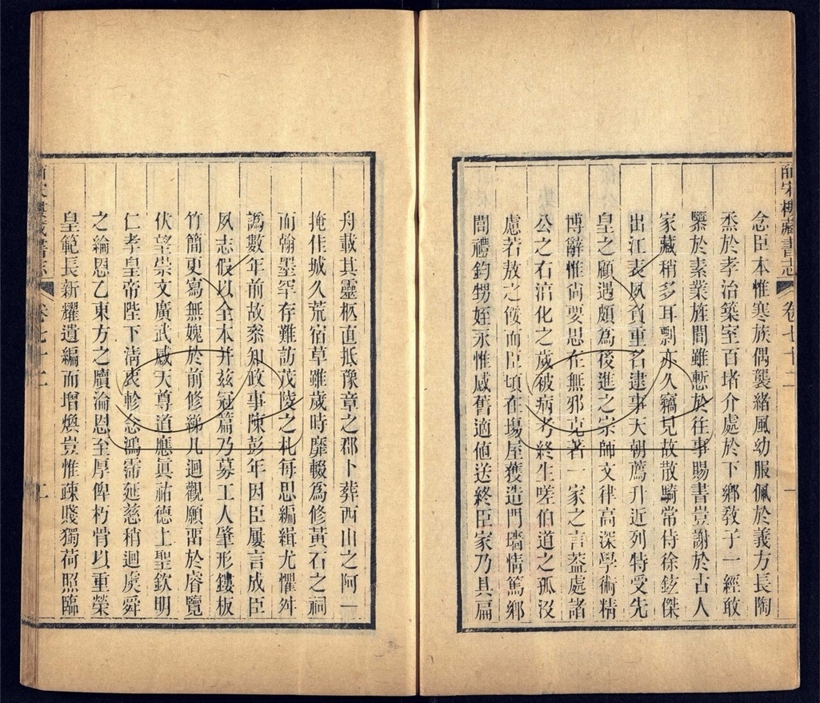 皕宋樓藏書志 卷七十二 一
念臣本惟寒族偶襲緒風幼服佩於義方長陶
烝於孝治築室百堵介處於下鄉敎子一經敢
隳於素業旌閭雖慙於往事賜書豈謝於古人
家藏稍多耳剽亦久竊見故散騎常侍徐鉉傑
出江表夙賓重名逮事天朝薦升近列特受先
皇之顧遇頗為後進之宗師文律高深學術精
博辭惟尙要思在無邪克著一家之言葢處諸
公之右淯化之歲被病考終生嗟伯道之孤沒
慮若敖之餒而臣頃在塲屋獲造門墻情篤鄉
閭禮鈞甥姪永惟感舊適値送終臣家乃具扁
舟載其靈柩直抵豫章之郡卜葬西山之阿一
掩佳城久荒宿草雖歲時靡輟為修黃石之祠
而翰墨罕存難訪茂陵之札每思編緝尤懼舛
譌數年前故叅知政事陳彭年因臣屢言成臣
夙志假以全本幷玆冠篇乃募工人肇形鏤板
竹簡更寫無媿於前修綈几迴觀願畱於睿覽
伏望崇文廣武感天尊道應眞祐德上聖欽明
仁孝皇帝陛下淸衷軫念鴻霈延慈稍迴虞舜
之綸恩乙東方之牘淪恩至厚俾朽骨以重榮
皇範長新耀遺編而增煥豈惟疎賤獨荷照臨
皕宋樓藏書志 卷七十二 二